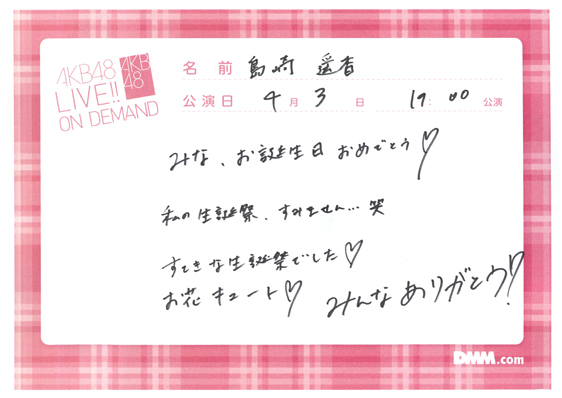 AKB48
LIVE!!
ON DEMAND
AKB
48
名前 島崎 遥香
公演日 4月 3日 19:00 公演
みな、お誕生日 おめでとう♡
私の生誕祭、すみません…笑
すてきな生誕祭でした♡
お花 キュート♡
みんなありがとう♡!
DMM.com